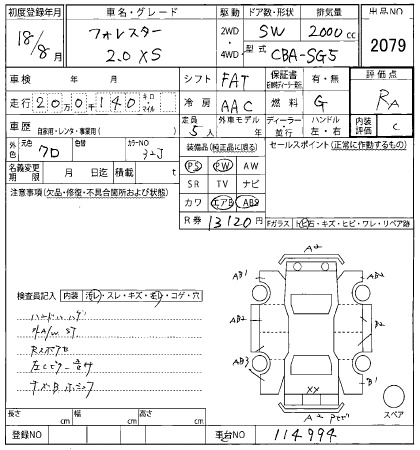 初度登録年月 車名・グレード 駆動 ドア数・形状 排気量 出品NO
18/8月 フォレスター 2.0 XS 2WD・4WD SW 2000cc 2079
型式 CBA-SG5
車検 年 月 シフト FAT 保証書 有・無 評価点
走行 20万0千140 キロ マイル 冷房 AAC 燃料 G RA
車歴 自家用・レンタ・事業用( ) 定員 5人 外車モデル 年 ディーラー・並行 ハンドル 左・右 内装評価 C
外色 7D 元色 色替 カラーNO 32J 装備品(純正品に限る) セールスポイント(正常に動作するもの)
名義変更期限 月 日迄 積載 t PS PW AW
注意事項(欠品・修復・不具合箇所および状態) SR TV ナビ
カワ エアB ABS
R券 13120円 Fガラス トビ石・キズ・ヒビ・ワレ・リペア跡
A2
AB1 AB2
AB2 B2
AB3 B1
XX
A2
スペア
検査員記入 内装 汚レ・スレ・キズ・切レ・コゲ・穴
長さ cm 幅 cm 高さ cm
登録NO 車台NO 114994